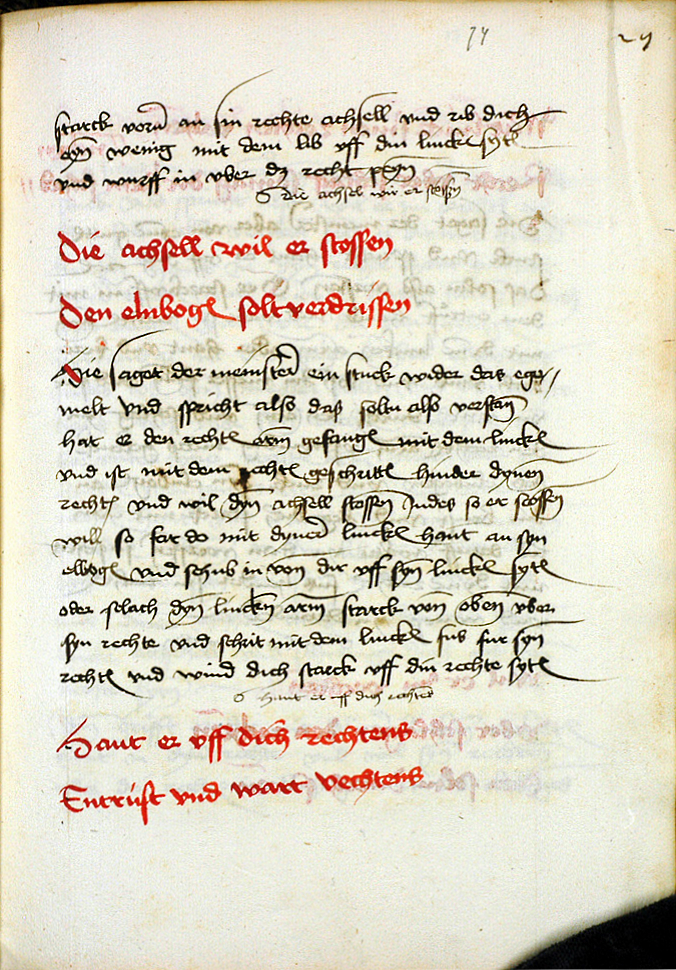 74
starck vorn an sin rechte achsell vnd rib dich
eyn wenig mit dem lib vff din linckē sytē
vnd wurff in vber dz recht peyn
die achsel wil er stossen
Die achsell wil er stossen
Den elnbogē solt verdrissen
Hie saget der meinster ein stuck wider das ege/
melt vnd spricht also daß soltu also verstan
hat er den rechtē arm gefangē mit dem linckē
vnd ist mit dem rechtē geschrittē hinder dynen
rechtē vnd wil dyn achsell stossen Indes so er stossen
will so far do mit dyner linckē hant an syn
elbogē vnd schub in von dir vff syn linckē sytē
oder schlach dyn linckñ arm starck von oben vber
syn rechte vnd schrit mit dem linckē fus fur syn
rechtē vnd wind dich starck vff din rechte sytē
Haut er vff dich rechtens
Haut er vff dich rechtens
Entrust vnd wart vechtens